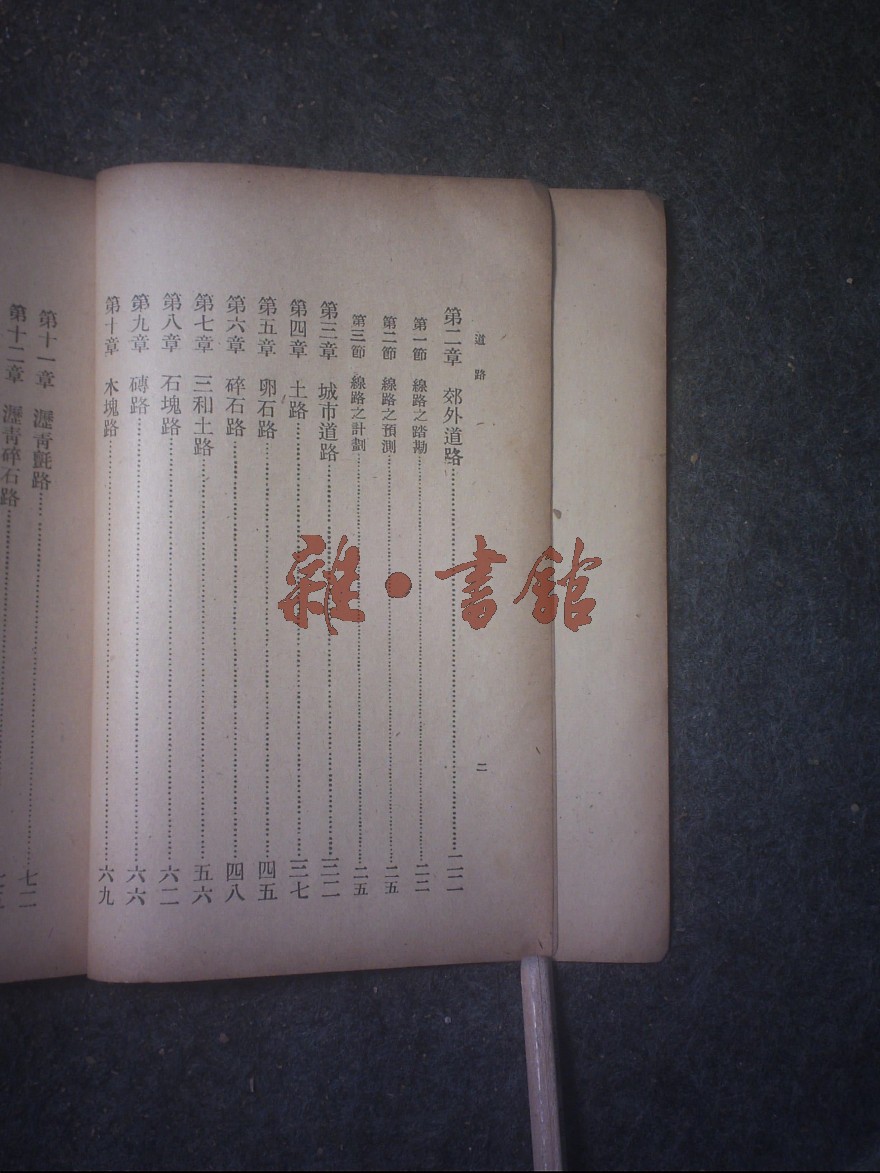 道路
二
第二章　郊外道路……二二
第一節　線路之踏勘……二二
第二節　線路之預測……二五
第三節　線路之計劃……二五
第三章　城市道路……三二
第四章　土路……三七
第五章　卵石路……四五
第六章　碎石路……四八
第七章　三和土路……五六
第八章　石塊路……六二
第九章　磚路……六六
第十章　木塊路……六九
第十一章　瀝青氈路……七二
第十二章　瀝青碎石路……
雜·書館